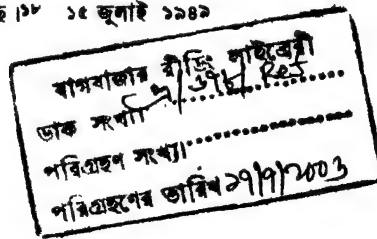 ছ।১৮ ১৫ জুলাই ১৯৪৯
বাগবাজার রীডিং লাইব্রেরী
ডাক সংখ্যা
পরিগ্রহণ সংখ্যা
পরিগ্রহণের তারিখ ২৭/৭/2003